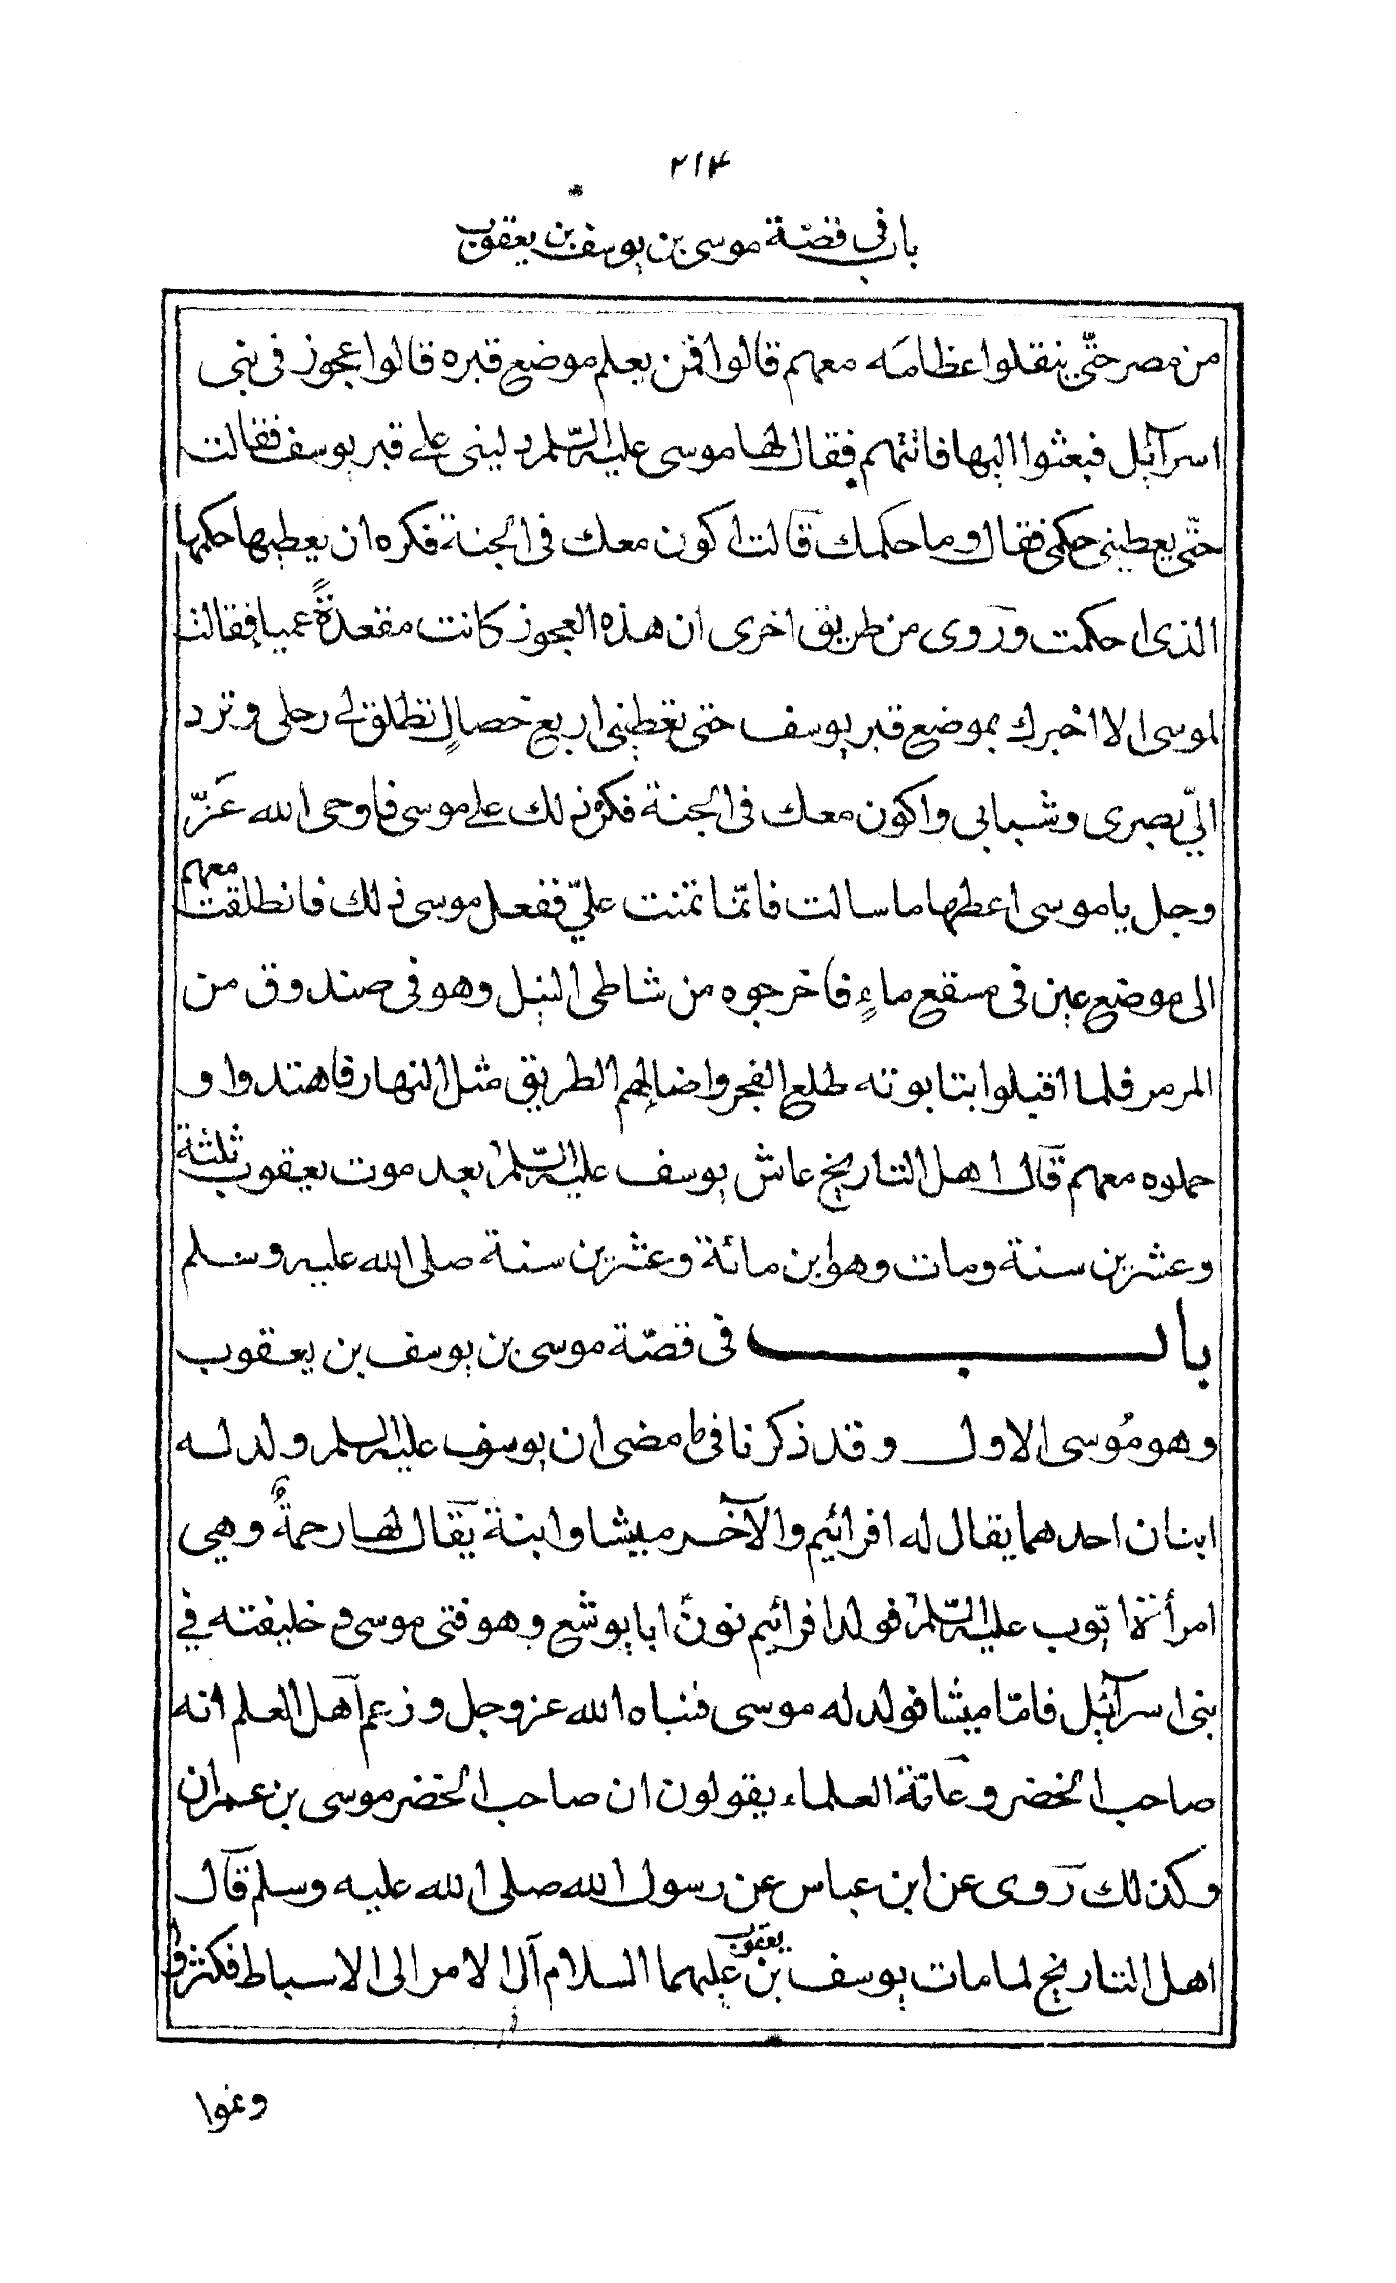 ٢١٤
باب في قصّة موسى بن يوسف بن يعقوب
من مصر حتّى ينقلوا عظامَه معهم قالوا فمن يعلم موضع قبره قالوا عجوز فى بنى
اسرآئيل فبعثوا اليها فاتتهم فقال لها موسى عليه السّلم دلينى على قبر يوسف فقالت
حتّى يعطينى حكمى فقال وما حكمك قالت اكون معك فى الجنة فكره ان يعطيها حكمها
الذى احكمت وروى من طريق اخرى ان هذه العجوز كانت مقعدةً عمياء فقالت
لموسى الا اخبرك بموضع قبر يوسف حتى تعطينى اربع خصالٍ تطلق لى رجلى وترد
اليّ بصرى وشبابى واكون معك فى الجنة فكبر ذلك على موسى فاوحى الله عَزّ
وجل يا موسى اعطها ما سالت فانّما تمنت عليّ ففعل موسى ذلك فانطلقت معهم
الى موضع عين فى مسقع ماءٍ فاخرجوه من شاطى النيل وهو فى صندوق من
المرمر فلما اقبلوا بتابوته طلع الفجر واضا لهم الطريق مثل النهار فاهتدوا و
حملوه معهم قال اهل التاريخ عاش يوسف عليه السّلم بعد موت يعقوب ثلثة
وعشرين سنة ومات وهو ابن مائة وعشرين سنة صلى الله عليه وسلم
باب فى قصّة موسى بن يوسف بن يعقوب
وهو مُوسى الاول وقد ذكرنا فى ما مضى ان يوسف عليه السلم ولد له
ابنان احدهما يقال له افرائيم والآخر ميشا وابنة يقال لها رحمةٌ وهي
امرأة ايّوب عليه السّلم فولد افرائيم نون ابا يوشع وهو فتى موسى وخليفته في
بنى اسرآئيل فامّا ميشا فولد له موسى فنباه الله عز وجل وزعم اهل العلم انه
صاحب الخضر وعامّة العلماء يقولون ان صاحب الخضر موسى بن عمران
وكذلك روى عن ابن عباس عن رسول الله صلى الله عليه وسلم قال
اهل التاريخ لما مات يوسف بن يعقوب عليهما السلام آل الامر الى الاسباط فكثروا
ونموا